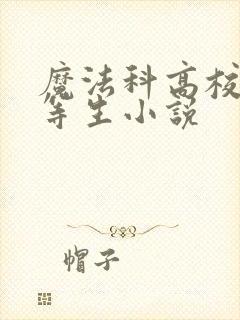 魔法科高校
等生小説
帽子